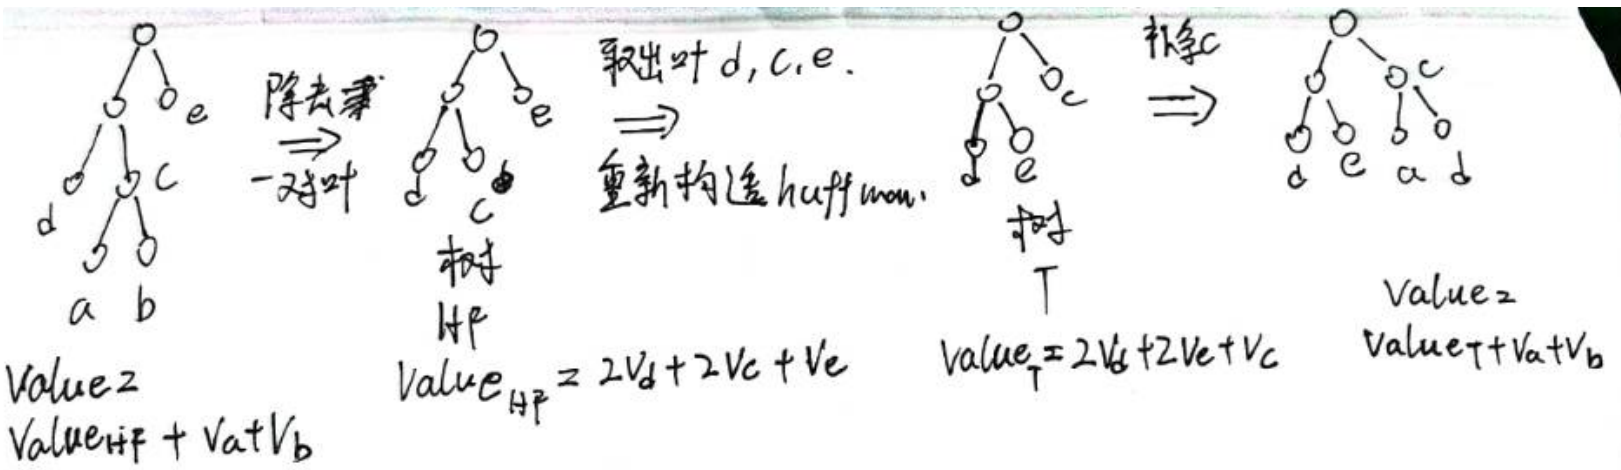 e
d
c
a b
Value=
Value HF + Va+Vb
除去
一对叶
e
d
c
树
HF
Value HF = 2Vd+2Vc+Ve
取出叶 d, c, e.
重新构造 huffman.
c
d e
树
T
Value T = 2Vd+2Ve+Vc
c
d e a d
Value=
Value T + Va+Vb